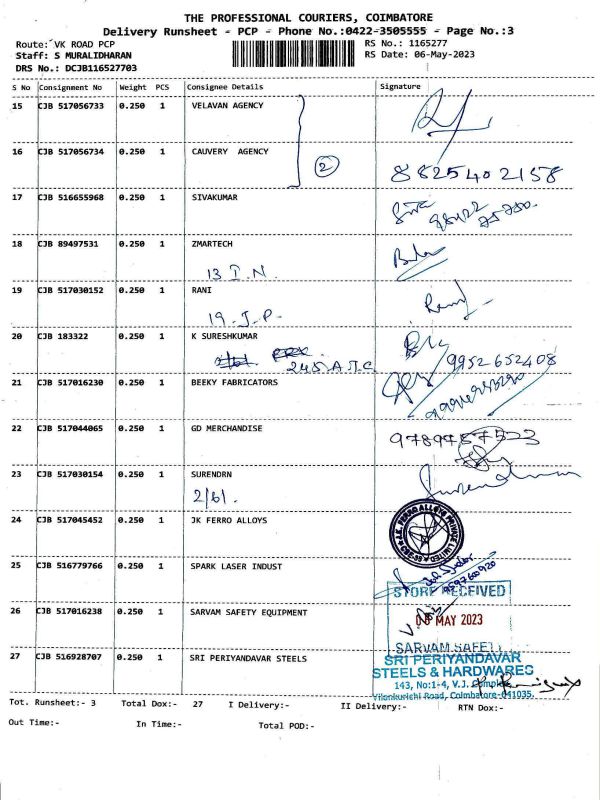 THE PROFESSIONAL COURIERS, COIMBATORE
Delivery Runsheet - PCP - Phone No.:0422-3505555 - Page No.:3
Route: VK ROAD PCP
RS No.: 1165277
Staff: S MURALIDHARAN
RS Date: 06-May-2023
DRS No.: DCJB116527703
S No Consignment No Weight PCS Consignee Details Signature
15 CJB 517056733 0.250 1 VELAVAN AGENCY
16 CJB 517056734 0.250 1 CAUVERY AGENCY
2
8825402158
17 CJB 516655968 0.250 1 SIVAKUMAR
18 CJB 89497531 0.250 1 ZMARTECH
13 I.N.
19 CJB 517030152 0.250 1 RANI
19-J.P.
20 CJB 183322 0.250 1 K SURESHKUMAR
245 A.T.C
9952652408
21 CJB 517016230 0.250 1 BEEKY FABRICATORS
22 CJB 517044065 0.250 1 GD MERCHANDISE
23 CJB 517030154 0.250 1 SURENDRN
2/61.
24 CJB 517045452 0.250 1 JK FERRO ALLOYS
25 CJB 516779766 0.250 1 SPARK LASER INDUST
STORE RECEIVED
26 CJB 517016238 0.250 1 SARVAM SAFETY EQUIPMENT
MAY 2023
27 CJB 516928707 0.250 1 SRI PERIYANDAVAR STEELS
SRI PERIYANDAVAR
STEELS & HARDWARES
143, No:1-4, V.J.
Vilankurichi Road, Coimbatore-641035.
Tot. Runsheet:- 3 Total Dox:- 27 I Delivery:- II Delivery:- RTN Dox:-
Out Time:- In Time:- Total POD:-